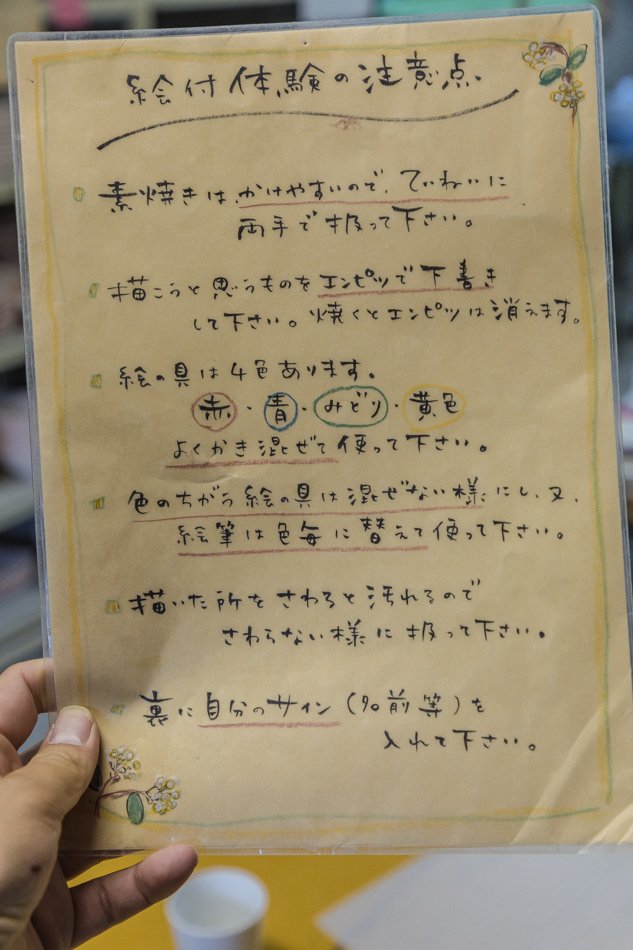 絵付体験の注意点
素焼きは、かけやすいので、ていねいに
両手で扱って下さい。
描こうと思うものをエンピツで下書き
して下さい。焼くとエンピツは消えます。
絵の具は4色あります。
赤・青・みどり・黄色
よくかき混ぜて使って下さい。
色のちがう絵の具は混ぜない様にし、又、
絵筆は色毎に替えて使って下さい。
描いた所をさわると汚れるので
さわらない様に扱って下さい。
裏に自分のサイン(名前等)を
入れて下さい。